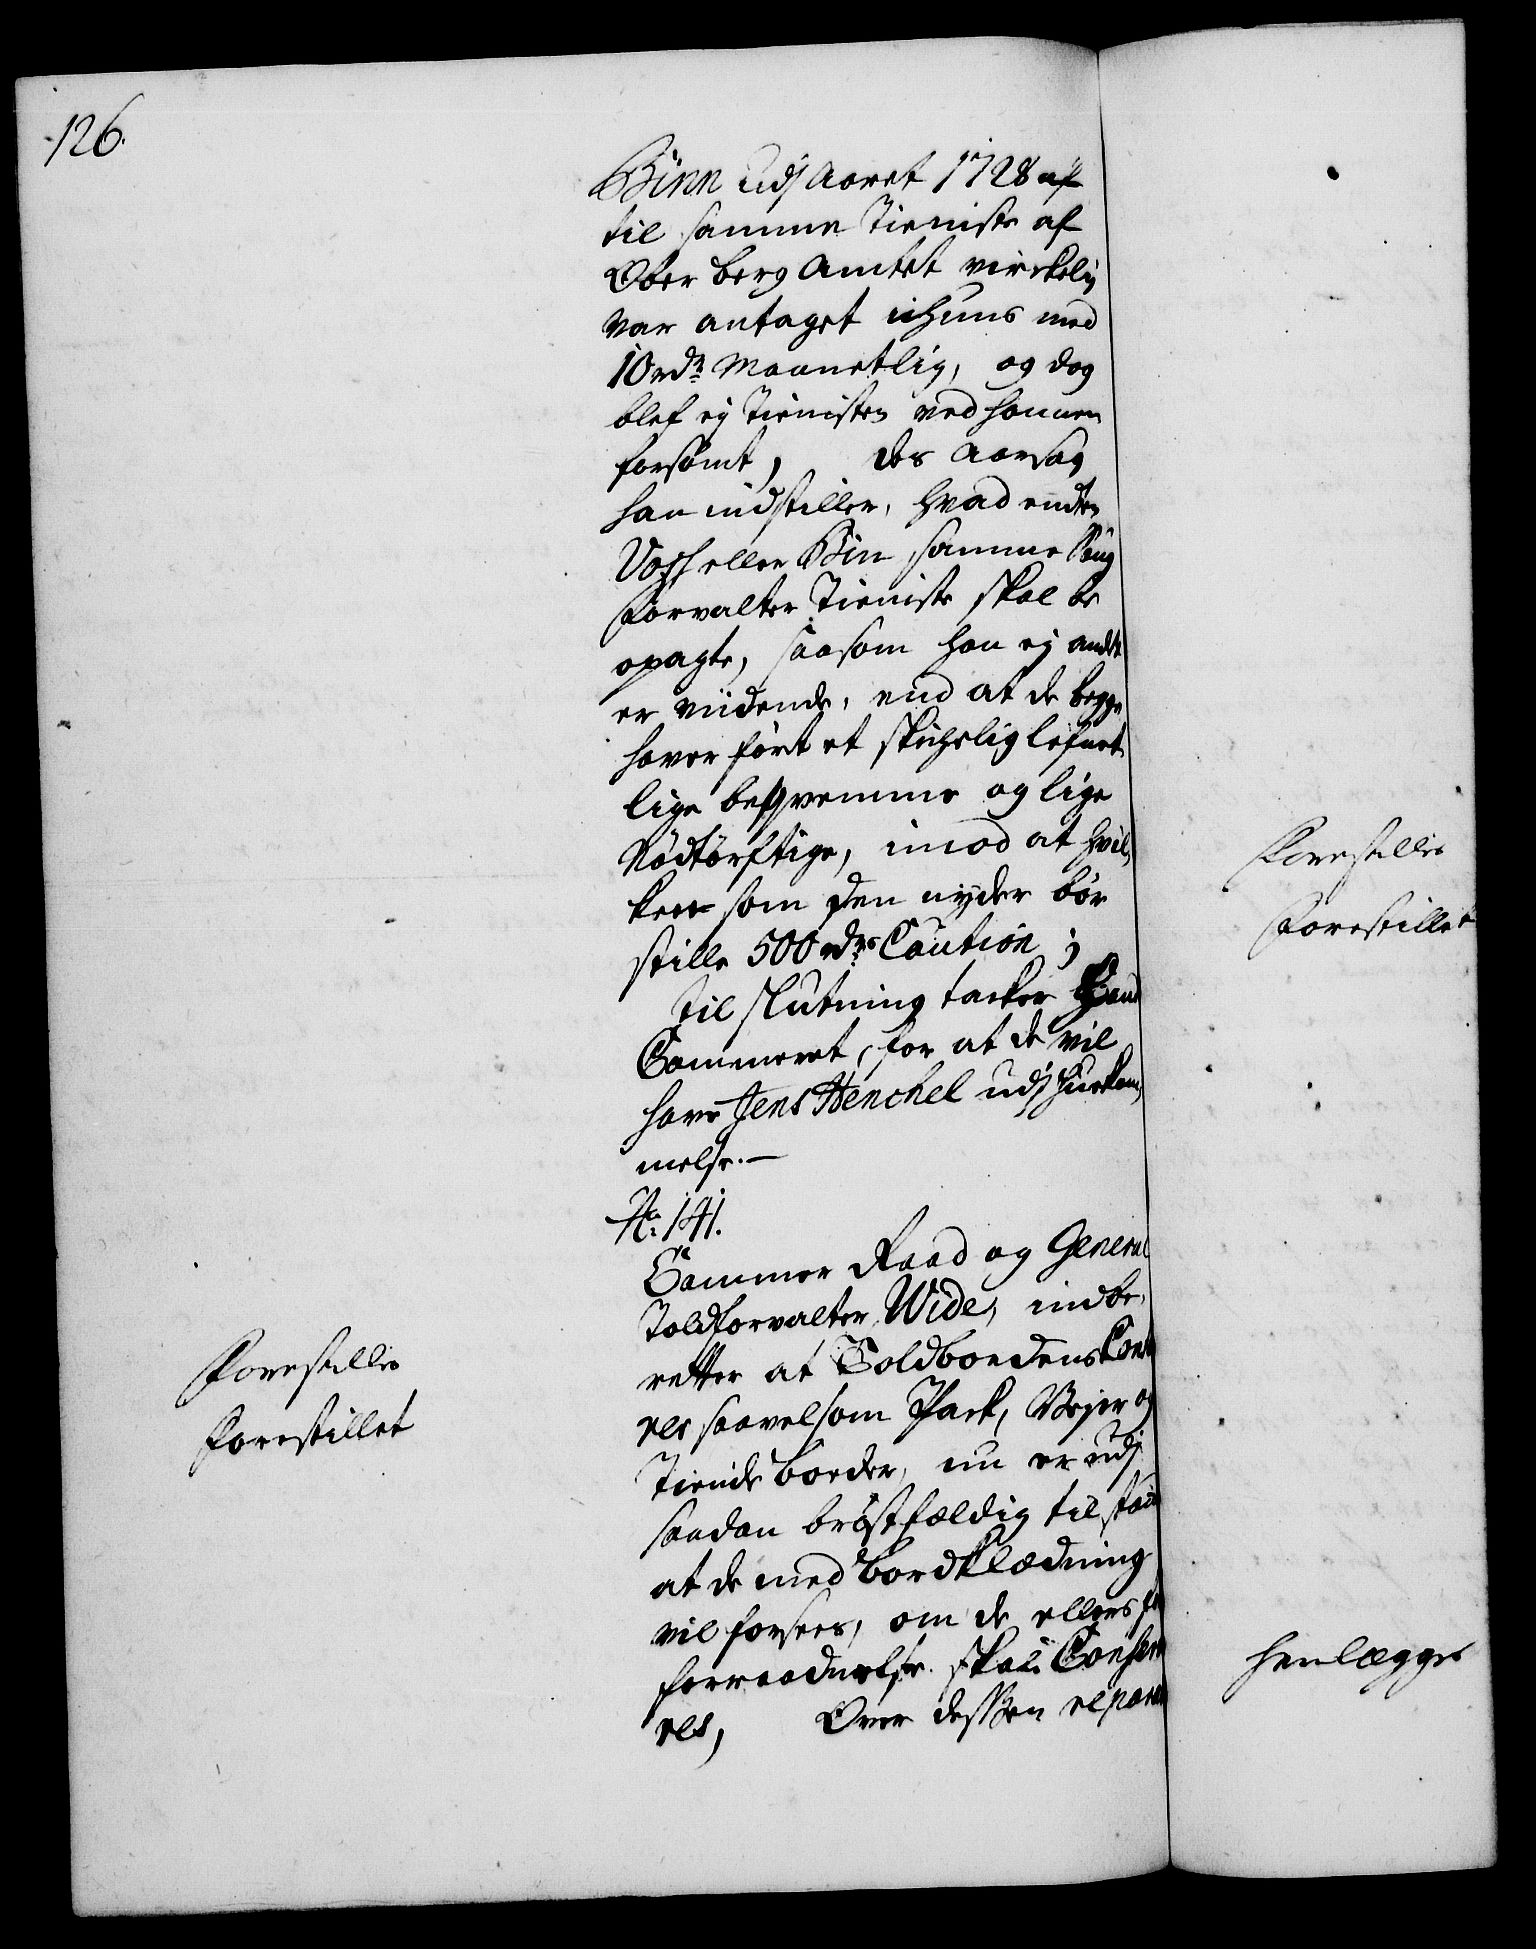 126.
Binn udj Aaret 1728 af
til samme Tieniste af
Ober Berg Amtet virckelig
var antaget iihuus med
10 rdr Maanetlig, og dog
blef ej Tienisten ved hannem
forsømt, des Aarsag
han indstiller, hvad endten
Voss eller Bin samme
forvalter Tieniste skal be
opagte, saasom han ej andet
er viidende, end at de begge
haver ført et skichelig lefnet
lige beqvemme og lige
Nødtørftige, imod at hvil,
ken som den nyder bør
stille 500 rdrs Caution;
til slutning tacker
Cammeret, for at de vil
have Jens Henchel udj hukom,
melse.—
No. 141.
Cammer Raad og General
Toldforvalter Wide, indbe,
retter at Toldboedens
res saavelsom Pack, Vejer og
Tiende boeder, nu er udj
saadan brøstfældig tilstand
at de med Bordklædning
vil forsees, om de ellers for
forraadnelse skal Conserve
res, Over dessen repara
Forestilles
Forestillet
Forestilles
Forestillet
henlægges